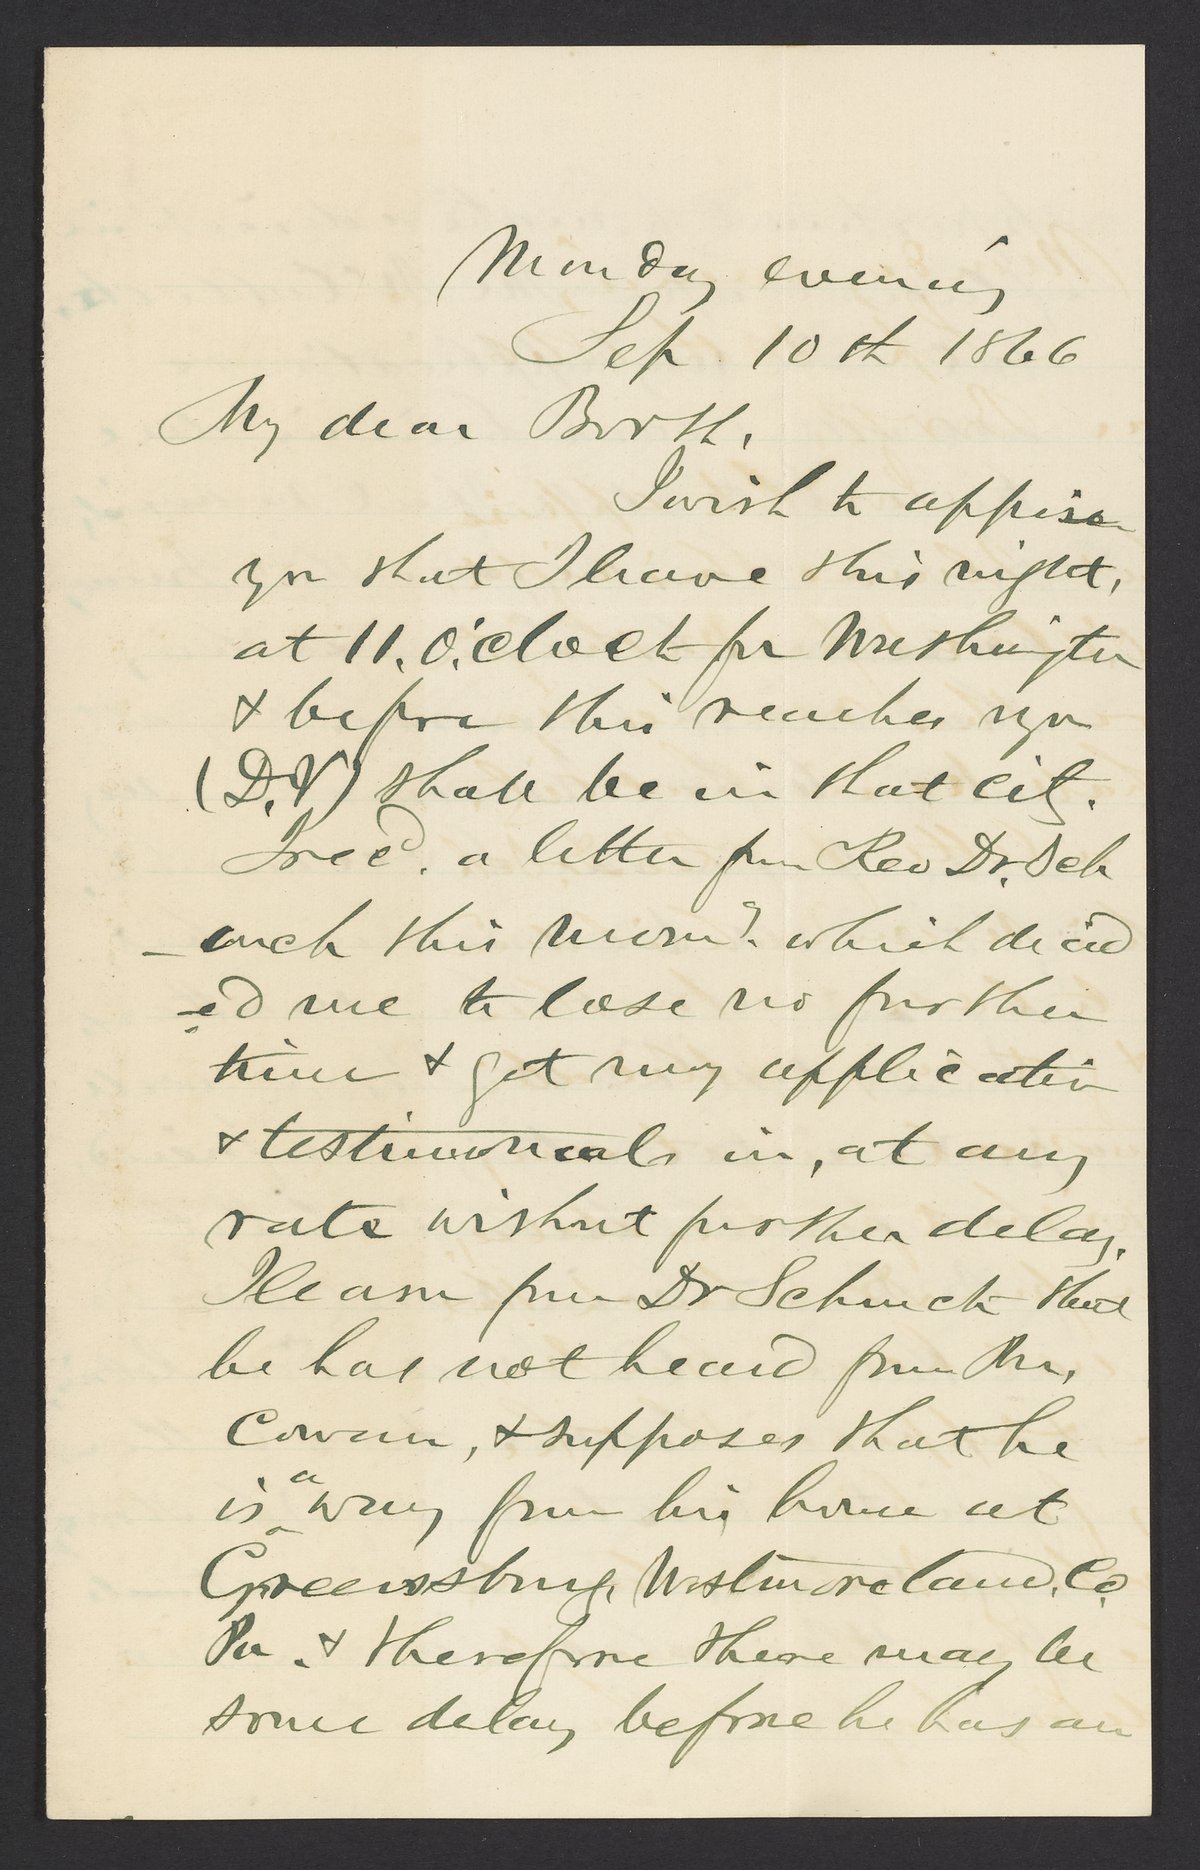 Monday evening
Sep. 10th 1866
My dear Booth,
I wish to apprise
you that I leave this night,
at 11. O'.clock for Washington
& before this reaches you
(D.V) shall be in that city.
I rec'd. a letter from Rev Dr. Sch
-muck this morng. which decid
-ed me to lose no further
time & get my application
& testimonials in, at any
rate without further delay.
I learn from Dr Schmuck that
he has not heard from Mr.
Cowan, & supposes that he
is away from his home at
Greensburg, Westmoreland, Co.
Pa. & therefore there may be
some delay before he has an